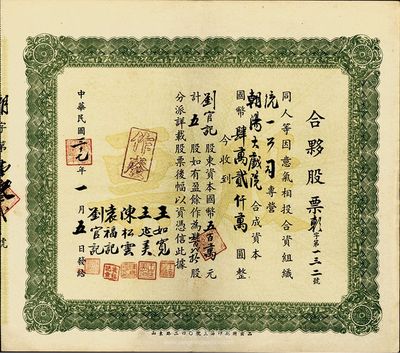 合夥股票
朝字第一三二號
同人等因意氣相投合資組織
沅一公司專營
朝陽大戲院合成資本
國幣肆萬貳仟萬圓整
今收到
劉官記股東資本國幣五百萬元
計五股如有盈餘作為
分派詳載股票後幅以資憑信此據
作廢
中華民國
年一月五日發給
王如寬
陳松雲
袁福記
劉官記